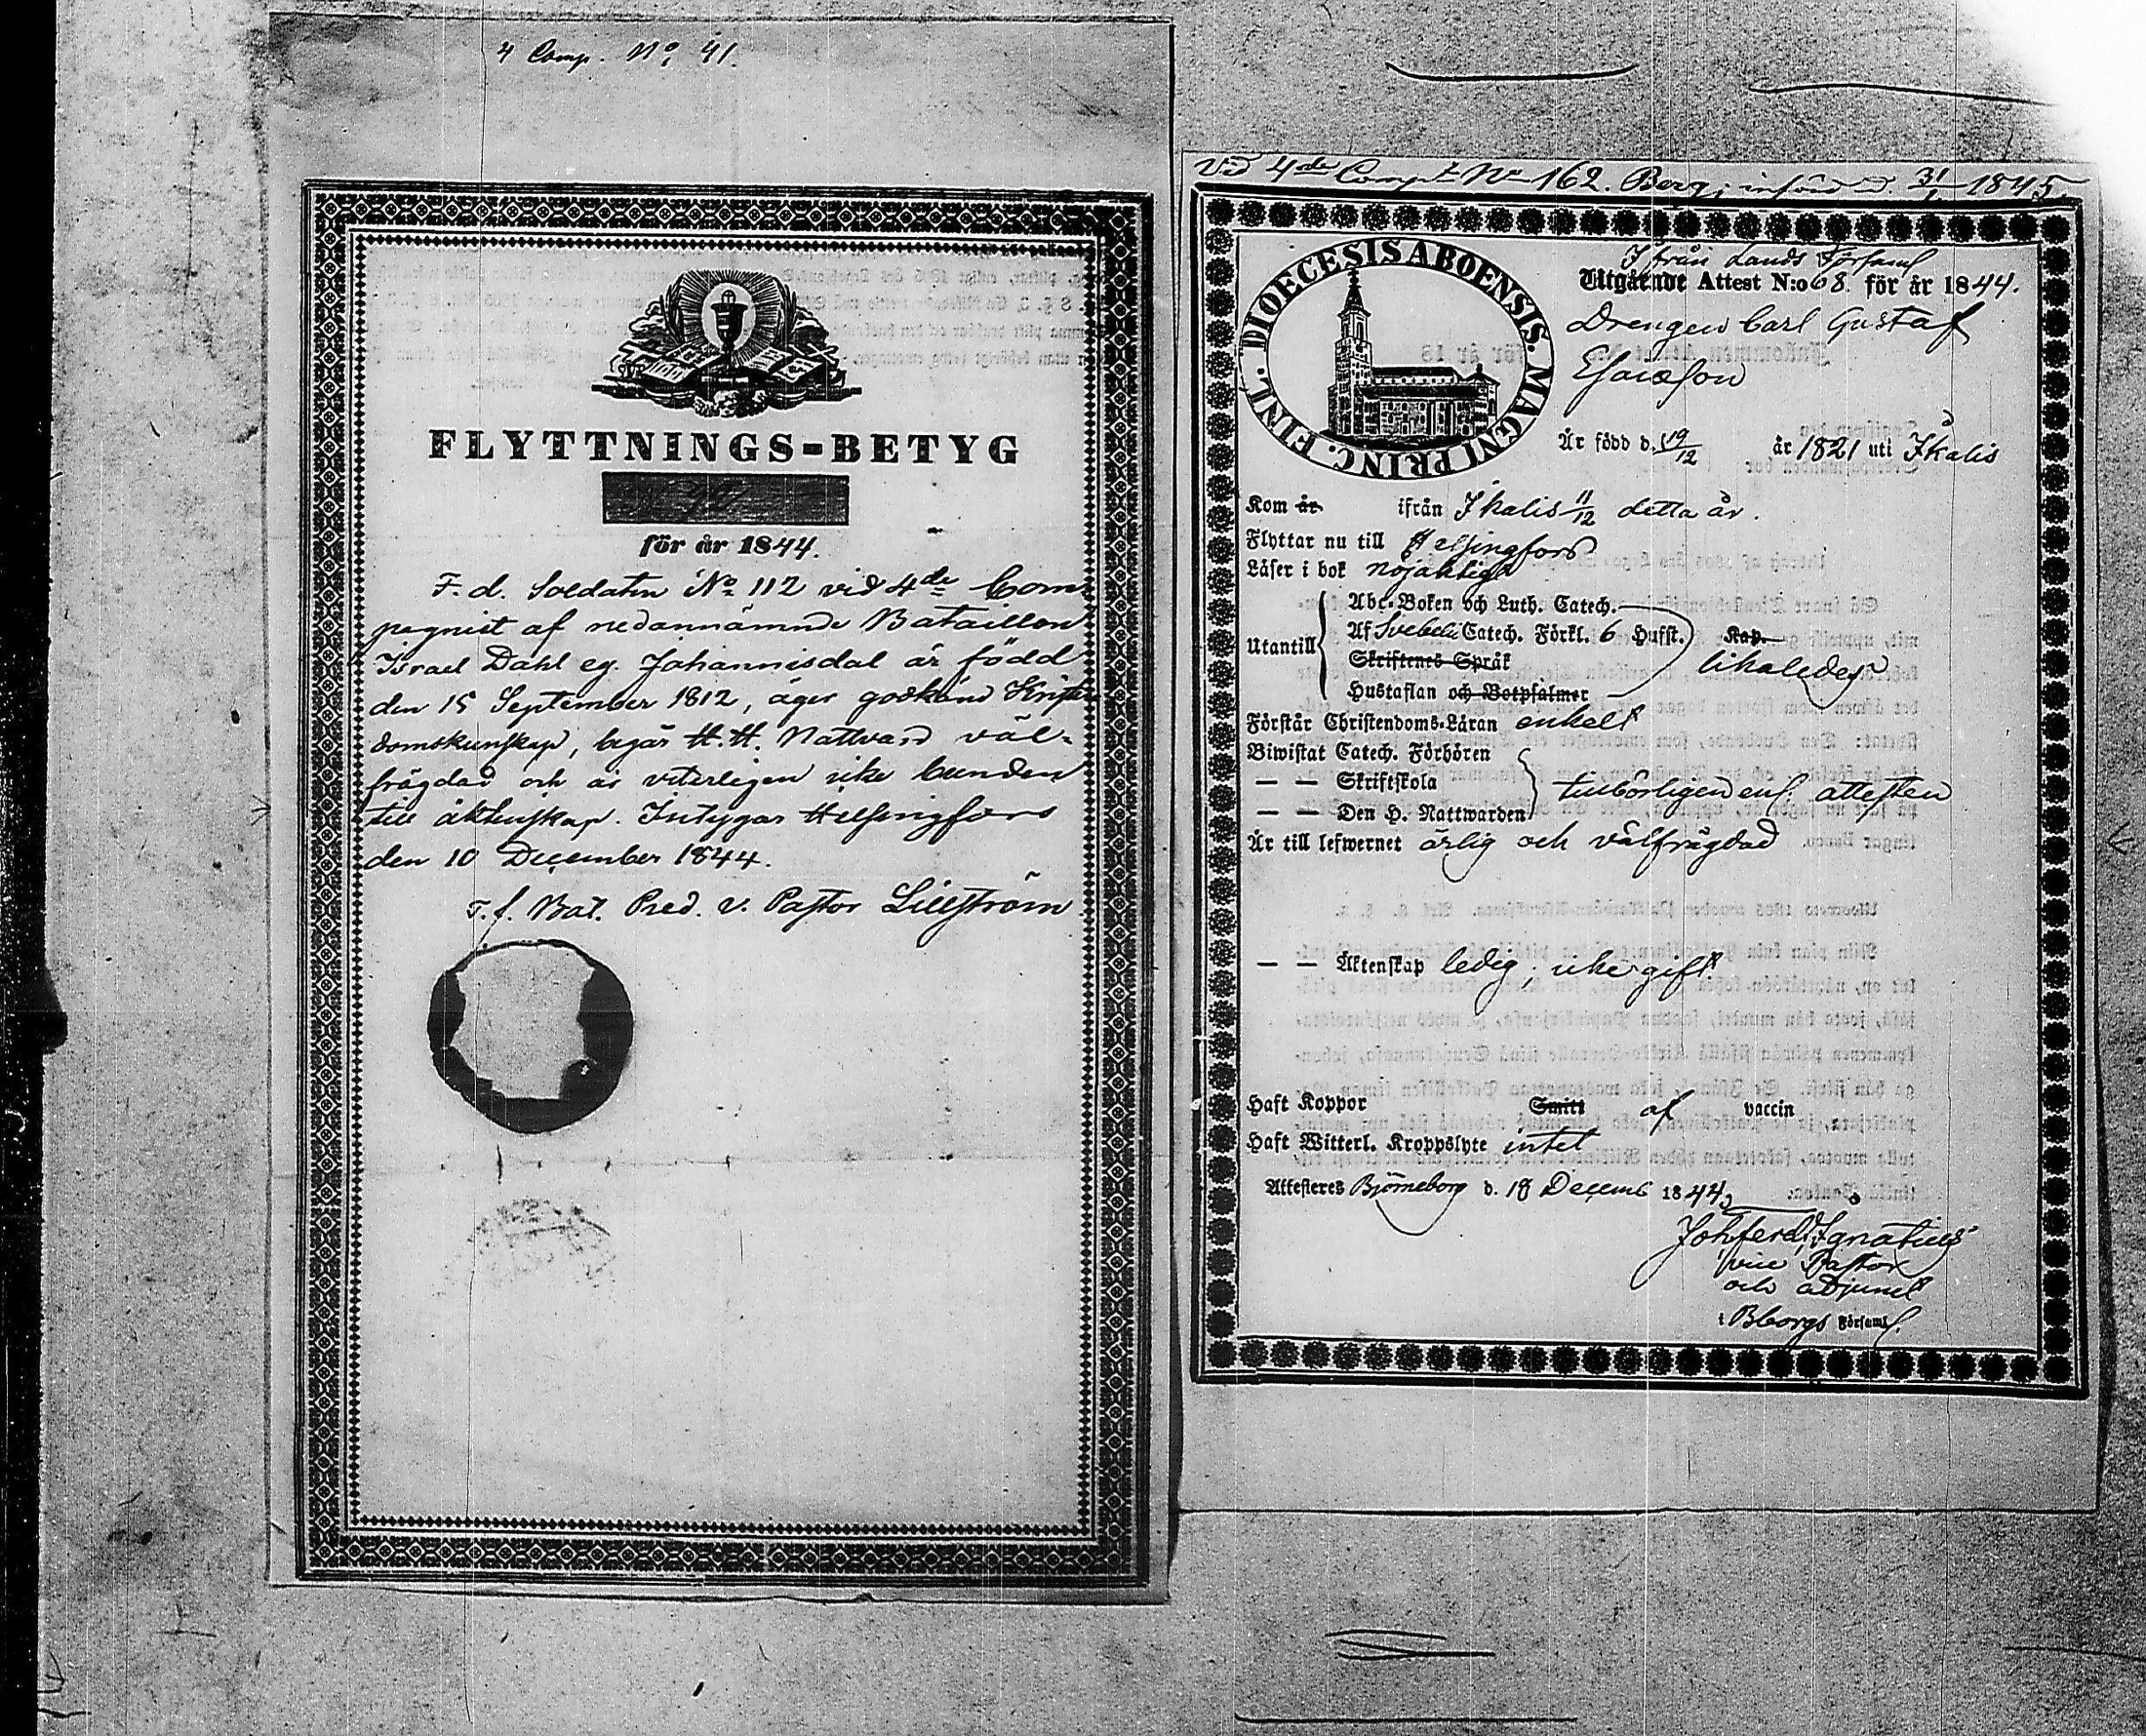 4 Comp. No. 41.
FLYTTNINGS-BETYG
för år 1844.
F. d. Soldaten No 112 vid 4de Com
pagniet af nedannämnde Bataillon
Israel Dahl eg. Johannisdal är född
den 15 September 1812, äger godkänd Kristen
domskunskap, begår H. H. Nattvard väl-
frägdad och är viterligen icke bunden
till äktenskap. Intygar Helsingfors
den 10 December 1844.
T. f. Bat. Pred. v. Pastor Lillström
Vid 4de Compt No 162. Berg; införd d. 31/1 1845.
DIOECESIS ABOENSIS. MAGNI PRINC. FINL.
Ifrån Lands Församl
Utgående Attest N:o 68. för år 1844.
Drengen Carl Gustaf
Esaiasson
Är född d. 19/12 år 1821 uti Ikalis
Kom år ifrån Ikalis 11/12 detta år.
Flyttar nu till Helsingfors
Läser i bok nöjaktigt
Utantill
Abc-Boken och Luth. Catech.
Af Svebelii Catech. Förkl. 6 Hufst. Kap.
Skriftenes Språk
likaledes
Hustaflan och Botpsalmer
Förstår Christendoms-Läran enkelt
Biwistat Catech. Förhören
— — Skriftskola
tillbörligen enl. attesten
— — Den H. Nattwarden
Är till lefwernet ärlig och välfrägdad
— — Äktenskap ledig, icke gift
Haft Koppor Smitt af vaccin
Haft Witterl. Kroppslyte intet
Attesteres Björneborg d. 18 Decemb 1844,
Joh. Ferd. Ignatius
vice Pastor
och adjunct
i Bborgs Församl.